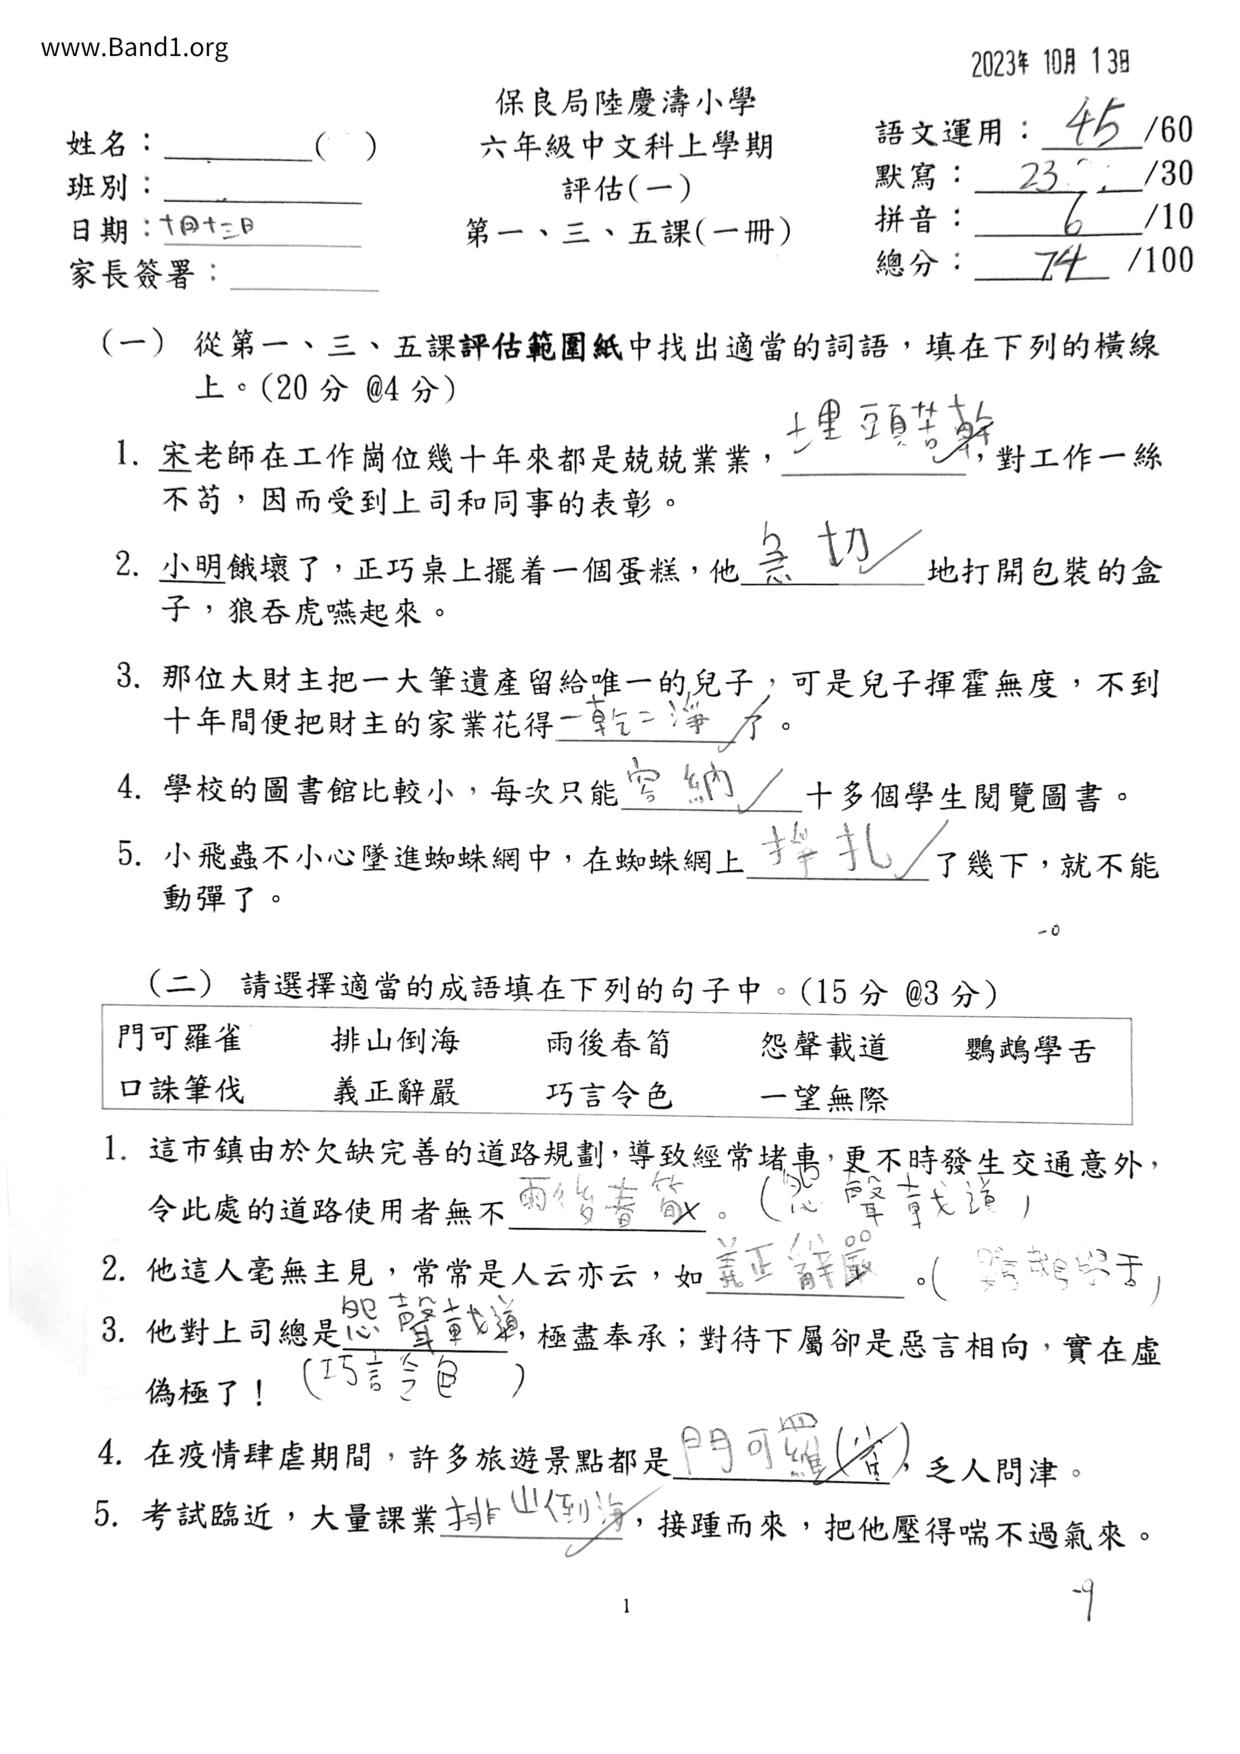 www.Band1.org
2023年 10月 13日
保良局陸慶濤小學
六年級中文科上學期
評估(一)
第一、三、五課(一冊)
姓名：( )
班別：
日期：十月十三日
家長簽署：
語文運用：45/60
默寫：23/30
拼音：6/10
總分：74/100
(一) 從第一、三、五課評估範圍紙中找出適當的詞語，填在下列的橫線
上。(20分 @4分)
1. 宋老師在工作崗位幾十年來都是兢兢業業，埋頭苦幹，對工作一絲
不苟，因而受到上司和同事的表彰。
2. 小明餓壞了，正巧桌上擺着一個蛋糕，他急切地打開包裝的盒
子，狼吞虎嚥起來。
3. 那位大財主把一大筆遺產留給唯一的兒子，可是兒子揮霍無度，不到
十年間便把財主的家業花得一乾二淨了。
4. 學校的圖書館比較小，每次只能容納十多個學生閱覽圖書。
5. 小飛蟲不小心墜進蜘蛛網中，在蜘蛛網上掙扎了幾下，就不能
動彈了。
-0
(二) 請選擇適當的成語填在下列的句子中。(15分 @3分)
門可羅雀 排山倒海 雨後春筍 怨聲載道 鸚鵡學舌
口誅筆伐 義正辭嚴 巧言令色 一望無際
1. 這市鎮由於欠缺完善的道路規劃，導致經常堵車，更不時發生交通意外，
令此處的道路使用者無不雨後春筍。(怨聲載道)
2. 他這人毫無主見，常常是人云亦云，如義正辭嚴。(鸚鵡學舌)
3. 他對上司總是怨聲載道，極盡奉承；對待下屬卻是惡言相向，實在虛
偽極了！(巧言令色)
4. 在疫情肆虐期間，許多旅遊景點都是門可羅(雀)，乏人問津。
5. 考試臨近，大量課業排山倒海，接踵而來，把他壓得喘不過氣來。
-9
1